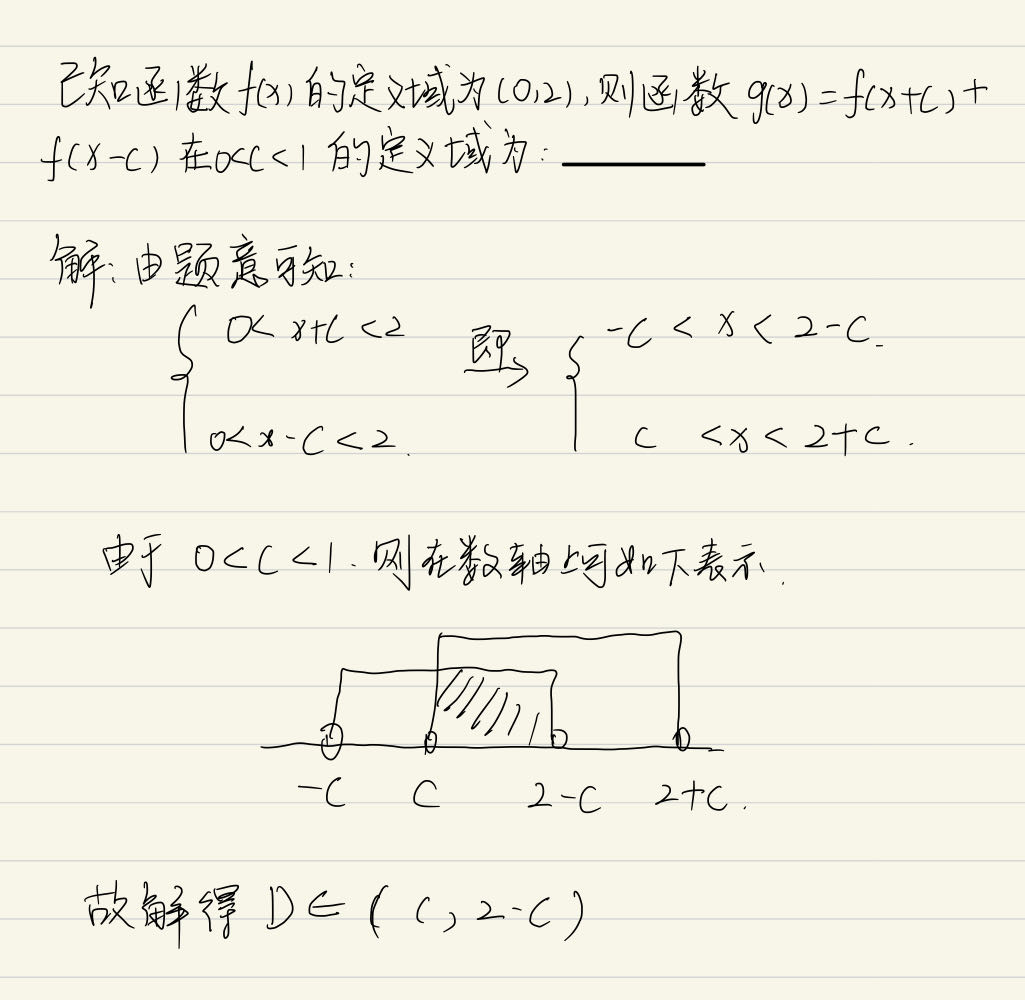 已知函数f(x)的定义域为(0,2),则函数 g(x)=f(x+c)+
f(x-c) 在0<c<1 的定义域为:
解:由题意可知:
{ 0< x+c <2 即 { -c < x < 2-c.
0<x-c<2. c <x< 2+c.
由于 0<c<1.则在数轴上可如下表示.
-c c 2-c 2+c.
故解得 D∈(c,2-c)